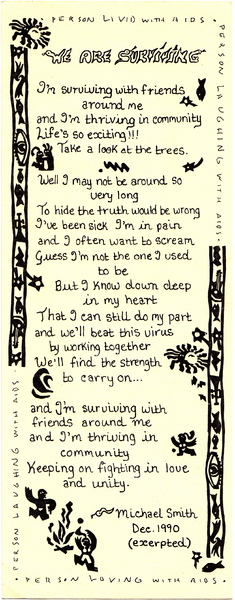 • PERSON LIVID WITH AIDS •
PERSON LAUGHING WITH AIDS •
WE ARE SURVIVING
I'm surviving with friends
around me
and I'm thriving in community
Life's so exciting!!!
Take a look at the trees.
Well I may not be around so
very long
To hide the truth would be wrong
I've been sick I'm in pain
and I often want to scream
Guess I'm not the one I used
to be
But I know down deep
in my heart
That I can still do my part
and we'll beat this virus
by working together
We'll find the strength
to carry on...
and I'm surviving with
friends around me
and I'm thriving in
community
Keeping on fighting in love
and unity.
Michael Smith
Dec. 1990
(exerpted)
PERSON LAUGHING WITH AIDS •
• PERSON LOVING WITH AIDS •